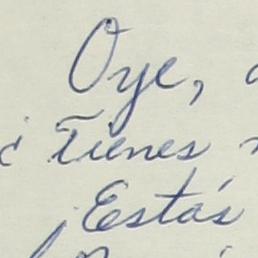 Oye,
¿Tienes
¡Estás